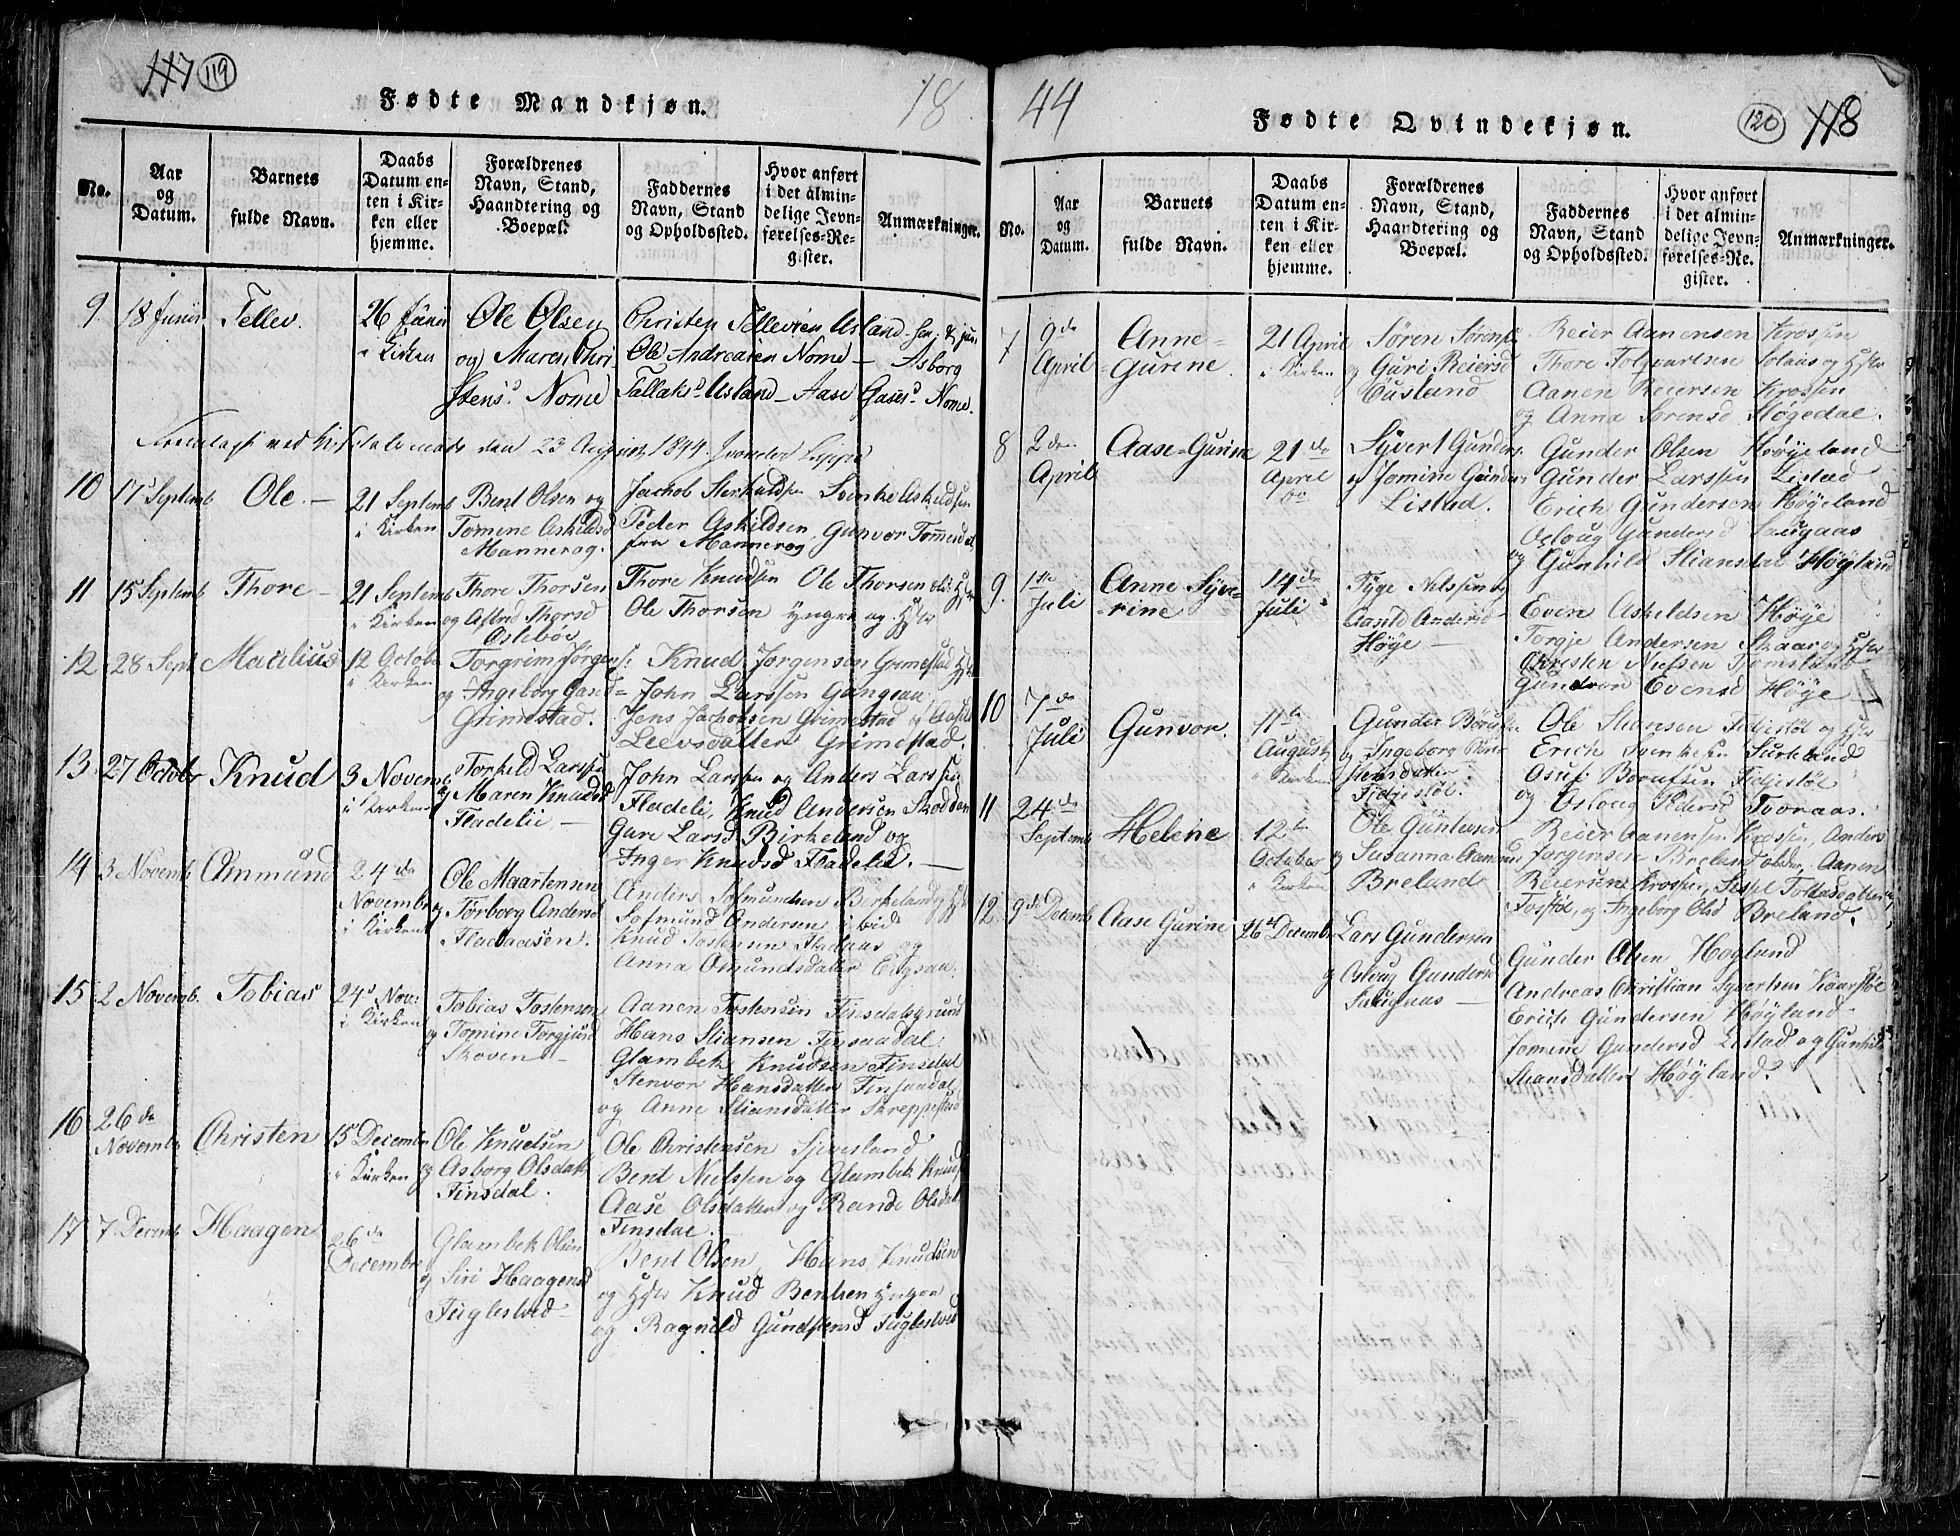 117 119
Fødte Mandkjøn. 18
No.
Aar og Datum.
Barnets fulde Navn.
Daabs Datum enten i Kirken eller hjemme.
Forældrenes Navn, Stand, Haandtering og Boepæl.
Faddernes Navn, Stand og Opholdssted.
Hvor anført i det almindelige Jevnførelses-Register.
Anmærkninger.
9. 18 Junii Tellev.
26 Junii i Kirken
Ole Olsen
og Maren Chri
stens. Nome
Christen Tellevsen Usland. sen. & jun.
Ole Andreasen Nome — Asborg
Tallaks. Usland — Aase Gases. Nome.
den 23 August 1844.
10 17 Septemb Ole. —
21 Septemb i Kirken
Bent Olsen og
Tomine Askildsd
Mannerog.
Jachob Terkeldsen Svenke Askildsen
Peder Askildsen, Gunvor Tommesd
fra Mannerog
11 15 Septemb Thore —
21 Septemb i Kirken
Thore Thorsen
og Astrid Thorsd
Oslebøe
Thore Knudsen Ole Thorsen
Ole Thorsen yngre og
12 28 Sept Matilius
12 Octobe i Kirken
Torgrim Jørgens:
og Ingeborg Gased
Grimestad.
Knud Jørgensen Grimestad
John Larssen Gangsaa,
Jens Jachobsen Grimestad og Aase
Leevsdatter Grimestad.
13. 27 Octobr Knud
3 Novemb i Kirken
Torkeld Larssen
og Maren Knudsd
Fladelii —
John Larssen og Anders Larssen
Fladeli, Knud Andersen Skodden
Gure Larsd Birkeland og
Inger Knudsd Fladelii. —
14 3 Novemb Ommund
24de Novembr i Kirken
Ole Maartensen
og Torborg Andersd
Fladaasen.
Anders Sofmundsen Birkeland og
Sofmund Andersen ibid
Knud Tostensen Fladaas og
Anna Omundsdatter Eegsaa.
15 2 Novemb. Tobias
24d Nov: i Kirken
Tobias Tostensen
og Tomine Torgjusd
Skoven —
Aanen Tostensen Finsdalsgrund
Hans Stiansen Finsaadal,
Glambek Knudsen Finsdal
Stenvor Hansdatter Finsaadal
og Anne Stiansdatter Skreppestad
16 26de Novemb Christen
15 Decembr i Kirken
Ole Knudsen
og Asborg Olsdatt
Finsdal.
Ole Christensen Sjivesland
Bent Nielssen og Glambek Knuds
Aase Olsdatter og Rande Olsdat
Finsdal.
17 7 Decemb Haagen
26de Decembr
Glambek Olsen
og Siri Haagensd
Fuglestved —
Bent Olsen, Hans Knudsen
og Knud Bentsen yngre
og Ragnild Gundstensd Fuglestved
44 120 118
Fødte Qvindekjøn.
No.
Aar og Datum.
Barnets fulde Navn.
Daabs Datum enten i Kirken eller hjemme.
Forældrenes Navn, Stand, Haandtering og Boepæl.
Faddernes Navn, Stand og Opholdssted.
Hvor anført i det almindelige Jevnførelses-Register.
Anmærkninger.
7 9de April Anne=
=Gurine.
21 April i Kirken
Søren Sørens
og Guri Reiersd
Eusland
Reier Aanensen Krossen
Thore Tolvartsen Solaas og
Aanen Reiersen Krossen
og Anna Sørensd Høgedal.
8 2den April Aase=Gurine
21de April
Syvert Gunders
og Jomine Gunders
Listad.
Gunder Olsen Høyeland
Gunder Larssen Listad
Erich Gundersen Høyeland
Osloug Gundersd Saugaas
og Gunhild Stiansdat Høyland
9. 1ste Juli Anne Syv=
=rine
14de Juli
Tyge Nilssen og
Gunild Andersd
Høye —
Even Askildsen Høye
Torgje Andersen Skaar og
Christen Nielsen Tjomsland
Gundvor Evensd Høye —
10 7de Juli Gunvor.
11te August i Kirken
Gunder Børufs
og Ingeborg
datter
Fidjestøl.
Ole Stiansen Fidjestøl og
Erich Svenkesen Surteland
Osuf Borufsen Fidjestøl
og Osloug Pedersd Tvoraas.
11 24de Septemb Helene
12te October i Kirken
Ole Guntersen
og Susanna Aamund
Breland
Reier Aanensen Krossen, Anders
Jørgensen Breland ældre, Aanen
Reiersen Krossen, Sissel Tollagsdatter
Fosstøl, og Ingeborg Olsd Breland.
12. 9de Decemb Aase Gurine
26de Decemb
Lars Gundersen
og Osloug Gundersd
Saugaas —
Gunder Olsen Høgland
Andreas Christian Syvertsen Kaarstøl
Erich Gundersen Høyland
Jomine Gundersd Listad og Gunhild
Stiansdatter Høyland.